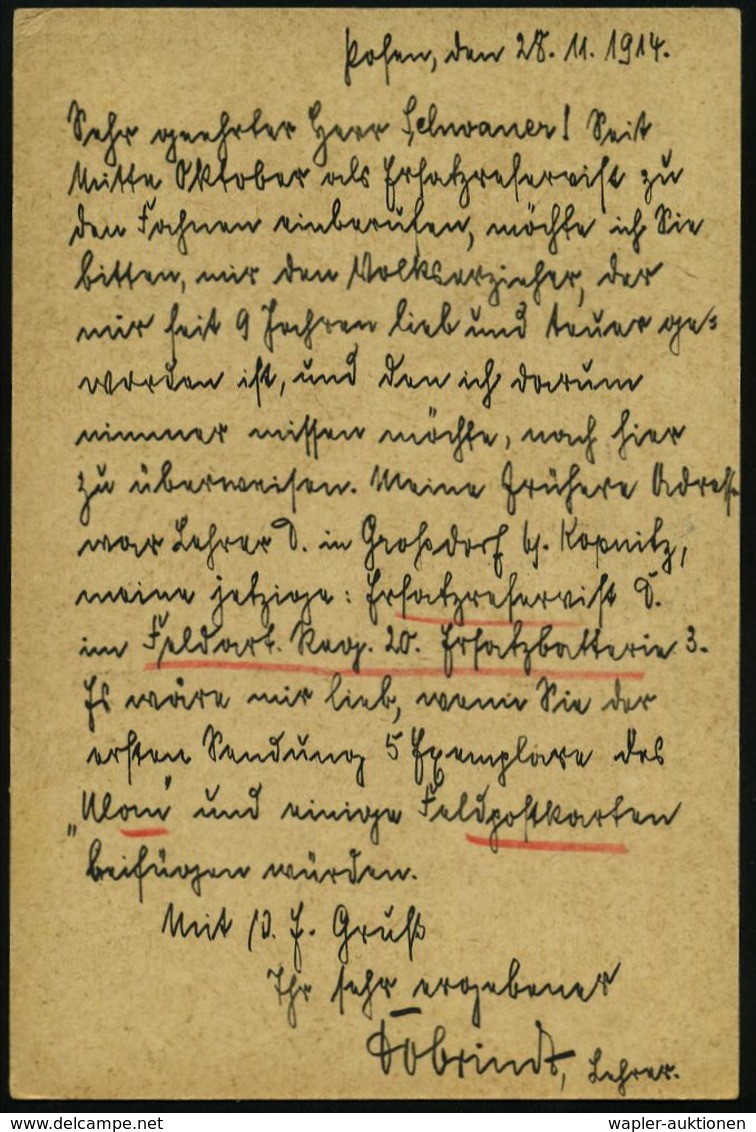 Posen, den 28. 11. 1914.
Sehr geehrter Herr Schwaner! Seit
Mitte Oktober als Ersatzreservist zu
den Fahnen einberufen, möchte ich Sie
bitten, mir den Volkserzieher, der
mir seit 9 Jahren lieb und teuer ge=
worden ist, und den ich darum
nimmer missen möchte, nach hier
zu überweisen. Meine frühere Adresse
war Lehrer D. in Großdorf b/. Kopnitz,
meine jetzige: Ersatzreservist D.
im Feldart. Reg. 20. Ersatzbatterie 3.
Es wäre mir lieb, wenn Sie der
ersten Sendung 5 Exemplare des
„Ulan" und einige Feldpostkarten
beifügen würden.
Mit d. E. Gruß
Ihr sehr ergebener
Dobrindt, Lehrer.
wapler-auktionen